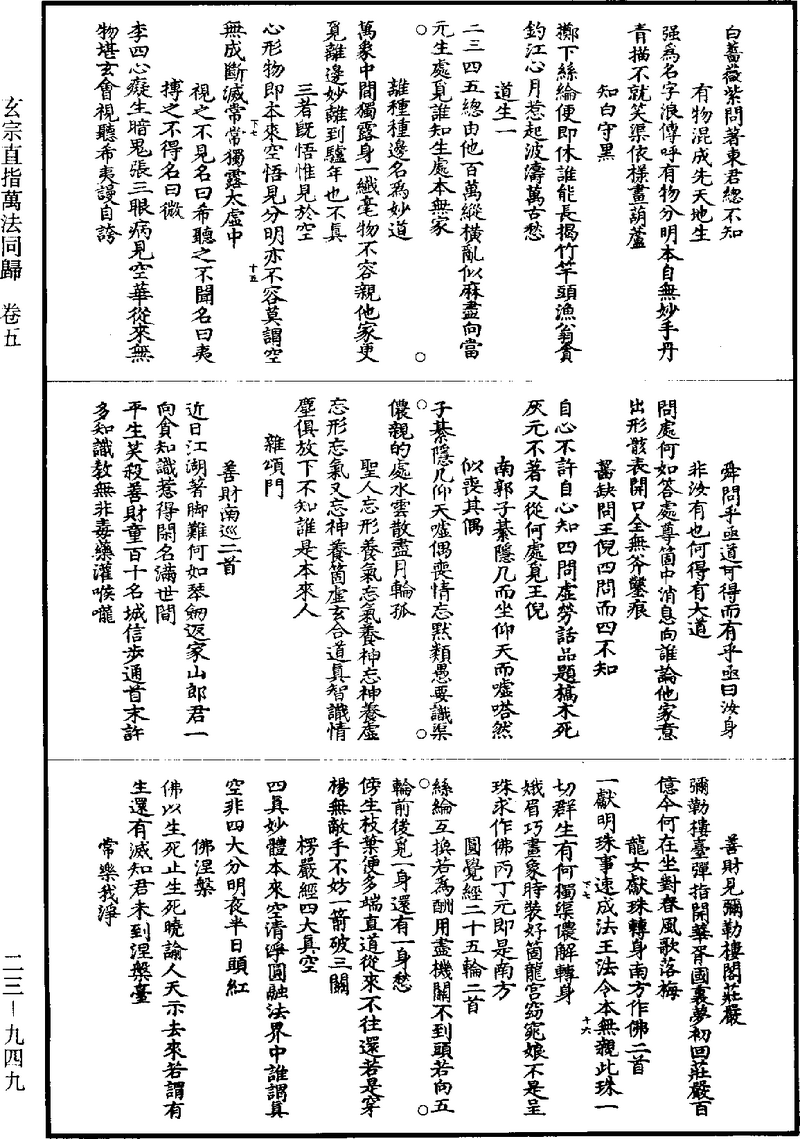 白薔薇紫問著東君總不知
有物混成先天地生
强爲名字浪傳呼有物分明本自無妙手丹
青描不就笑渠依樣畫葫蘆
知白守黑
擲下絲綸便即休誰能長揭竹竿頭漁翁貪
釣江心月惹起波濤萬古愁
道生一
二三四五總由他百萬縱橫亂似麻盡向當
元生處覓誰知生處本無家
離種種邊名爲妙道
萬象中間獨露身一纖毫物不容親他家更
覓離邊妙離到驢年也不眞
三者旣悟惟見於空
心形物即本來空悟見分明亦不容莫謂空
無成斷滅常常獨露太虛中
視之不見名曰希聽之不聞名曰夷
搏之不得名曰微
李四心癡生暗鬼張三眼病見空華從來無
物堪玄會視聽希夷謾自誇
舜問乎丞道可得而有乎丞曰汝身
非汝有也何得有大道
問處何如答處尊箇中消息向誰論他家意
出形骸表開口全無斧鑿痕
齧缺問王倪四問而四不知
自心不許自心知四問虛勞話品題槁木死
灰元不著又從何處覓王倪
南郭子綦隱几而坐仰天而噓嗒然
似喪其偶
子綦隱几仰天噓偶喪情忘默類愚要識渠
儂親的處水雲散盡月輪孤
聖人忘形養氣忘氣養神忘神養虛
忘形忘氣又忘神養箇虛玄合道眞智識情
塵俱放下不知誰是本來人
雜頌門
善財南巡二首
近日江湖著脚難何如琴劒返家山郎君一
向貪知識惹得閑名滿世間
平生笑殺善財童百十名城信步通首末許
多知識教無非毒藥灌喉嚨
善財見彌勒樓閣莊嚴
彌勒樓臺彈指開華胥國裏夢初回莊嚴百
億今何在坐對春風歌落梅
龍女獻珠轉身南方作佛二首
一獻明珠事速成法王法令本無親此珠一
切群生有何獨渠儂解轉身
娥眉巧畫象時裝好箇龍宮窈窕娘不是呈
珠求作佛丙丁元即是南方
圓覺經二十五輪二首
絲綸互換若爲酬用盡機關不到頭若向五
輪前後覓一身還有一身愁
傍生枝葉便多端直道從來不往還若是穿
楊無敵手不妨一箭破三關
楞嚴經四大眞空
四眞妙體本來空清淨圓融法界中誰謂眞
空非四大分明夜半日頭紅
佛涅槃
佛以生死止生死曉諭人天示去來若謂有
生還有滅知君未到涅槃臺
常樂我淨
玄宗直指萬法同歸　卷五
二三—九四九